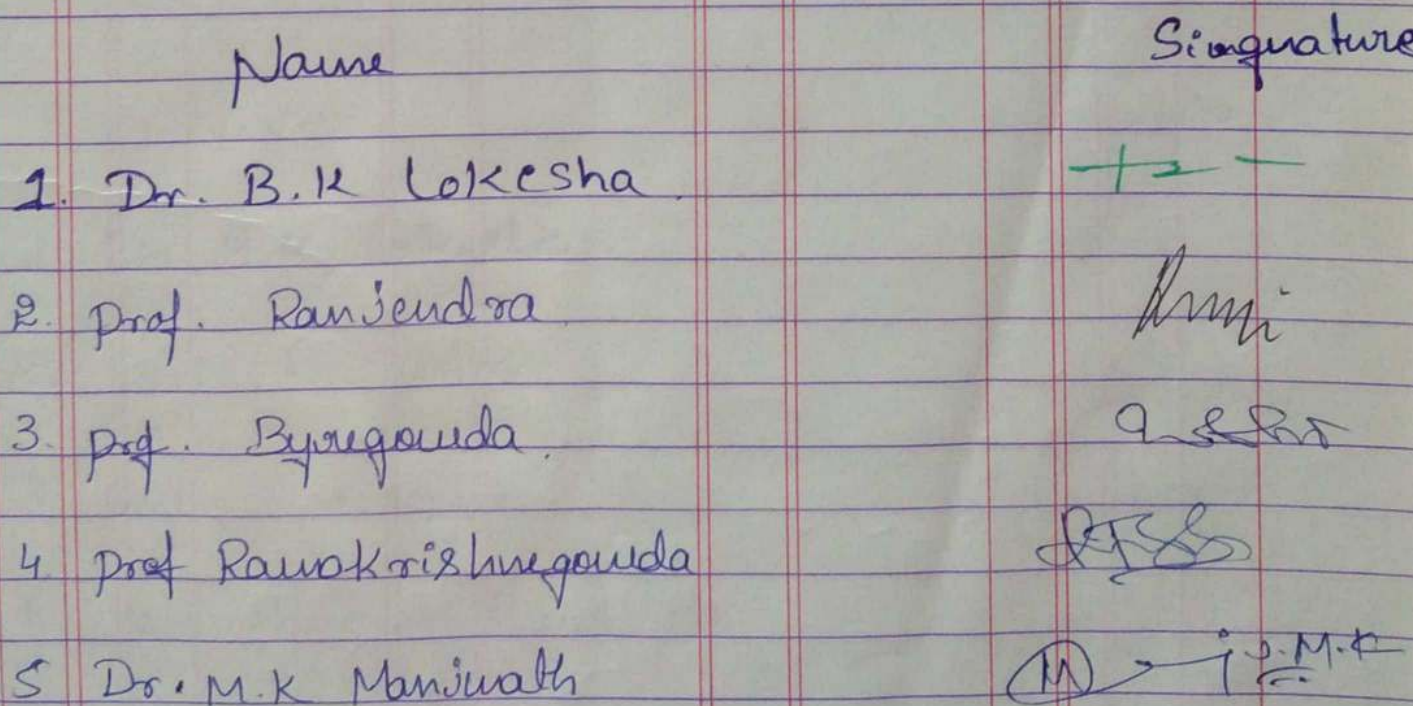 Name Simgnature
1. Dr. B.K Lokesha
2. Prof. Ranjendra
3. Prof. Byregowda
4 Prof Ramakrishnegowda
5 Dr. M.K Manjunath M.K